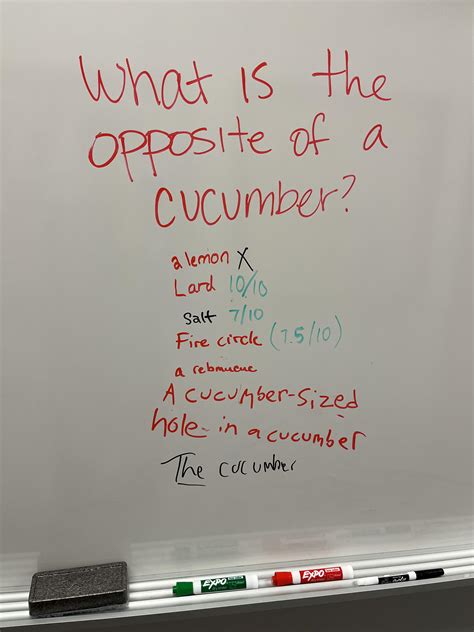 What is the
opposite of a
cucumber?
a lemon X
Lard 10/10
Salt 7/10
Fire circle (7.5/10)
a rebmucuc
A cucumber-sized
hole in a cucumber
The cucumber
EXPO EXPO